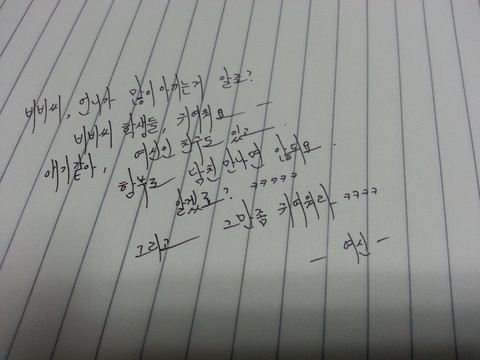 비비씨, 언니가 많이 아끼는거 알죠?
비비씨 학생들, 귀여워요 ㅡ
애기같아, 여신인 친구도 있고.
함부로 남친 만나면 안돼요.
알겠죠? ㅋㅋㅋㅋㅋ
그만좀 귀여워라 ㅋㅋㅋㅋ
그리고
- 여신 -